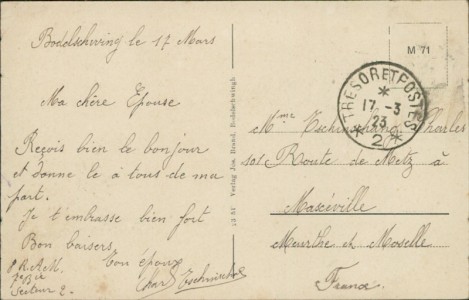 Bodelschwing le 17 Mars
Ma chère Épouse
Reçois bien le bonjour
et donne le à tous de ma
part.
Je t'embrasse bien fort
Bon baisers.
Ton époux
Charles
Secteur 2.
Verlag Jos. Brand, Bodelschwingh
M 71
TRESOR ET POSTES
17 -3
23
* 2 *
Mme Charles
101 Route de Metz à
Maxéville
Meurthe et Moselle
France